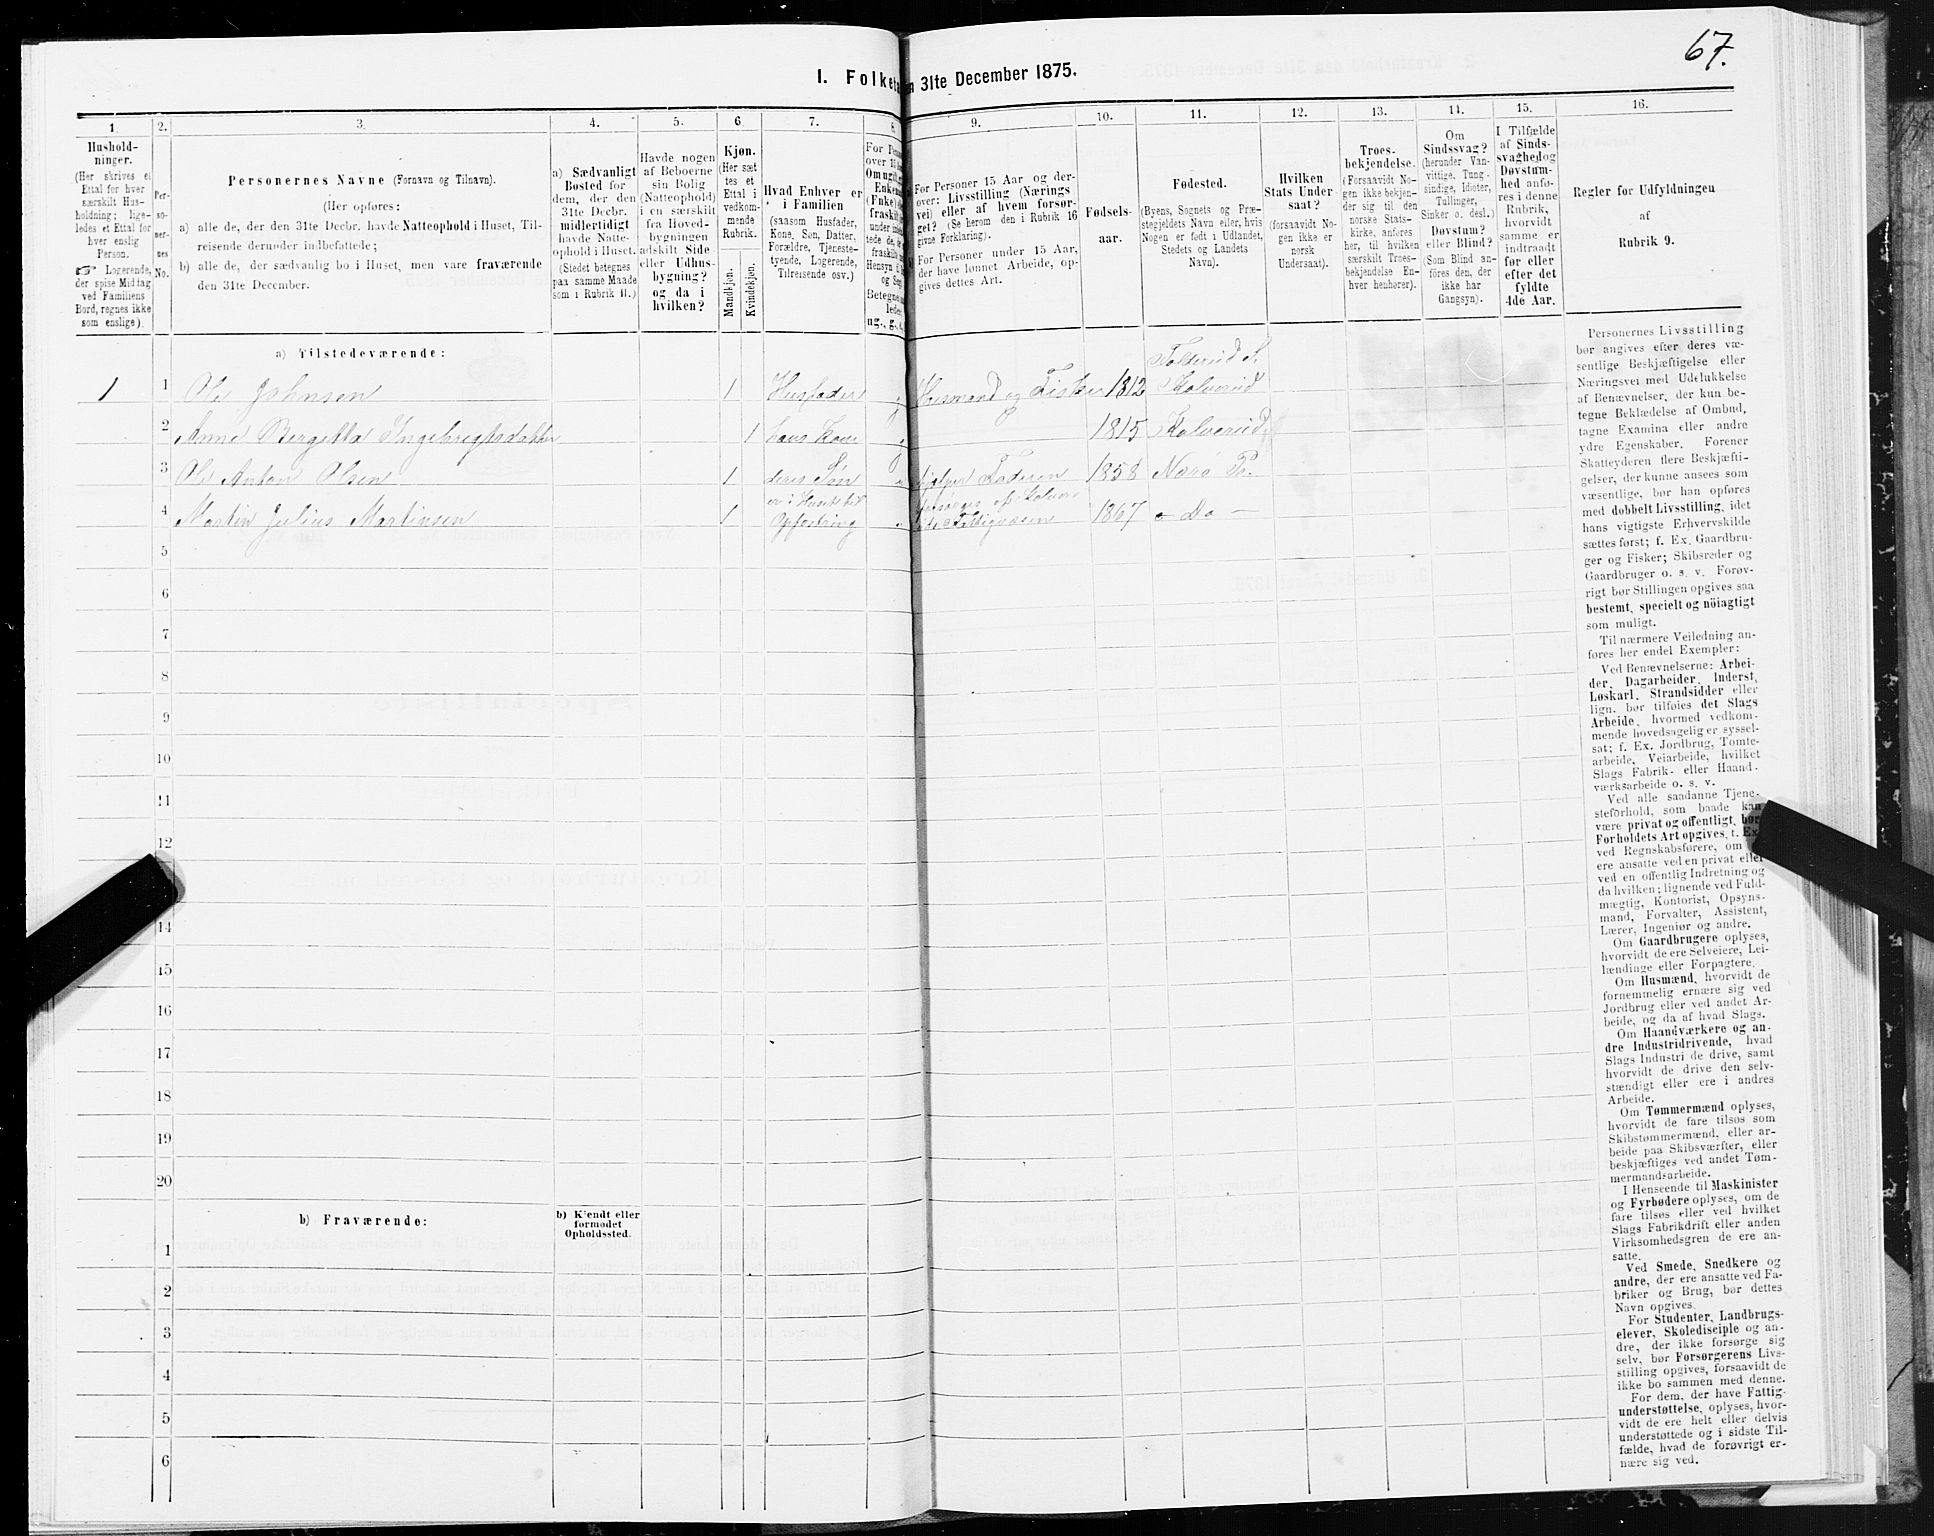 67.
I. Folketa
n 31te December 1875.
1.
2.
3.
4.
5.
6.
7.
8.
9.
10.
11.
12.
13.
14.
15.
16.
Hushold-
ninger.
(Her skrives et
Ettal for hver
særskilt Hus-
holdning; lige-
ledes et Ettal for
hver enslig
Person.
☞ Logerende,
der spise Middag
ved Familiens
Bord, regnes ikke
som enslige).
Per-
so-
ner-
nes
No.
Personernes Navne (Fornavn og Tilnavn).
(Her opføres:
a) alle de, der den 31te Decbr. havde Natteophold i Huset, Til-
reisende derunder indbefattede;
b) alle de, der sædvanlig bo i Huset, men vare fraværende
den 31te December.
a) Sædvanligt
Bosted for
dem, der den
31te Decbr.
midlertidigt
havde Natte-
ophold i Huset.
(Stedet betegnes
paa samme Maade
som i Rubrik 11.)
Havde nogen
af Beboerne
sin Bolig
(Natteophold)
i en særskilt
fra Hoved-
bygningen
adskilt Side-
eller Udhus-
bygning?
og da i
hvilken?
Kjøn.
(Her sæt-
tes et
Ettal i
vedkom-
mende
Rubrik.
Mandkjøn.
Kvindekjøn.
Hvad Enhver er
i Familien
(saasom Husfader,
Kone, Søn, Datter,
Forældre, Tjeneste-
tyende, Logerende,
Tilreisende osv.)
For Pers
over 15
Om ugift,
Enkem
(Fnke)
fraskilt
For Personer 15 Aar og der-
over: Livsstilling (Nærings
vei) eller af hvem forsør-
get? (Se herom den i Rubrik 16
givne Forklaring).
For Personer under 15 Aar,
der have lønnet Arbeide, op-
gives dettes Art.
Fødsels-
aar.
Fødested.
(Byens, Sognets og Præ-
stegjeldets Navn eller, hvis
Nogen er født i Udlandet,
Stedets og Landets
Navn).
Hvilken
Stats Under-
saat?
(forsaavidt No-
gen ikke er
norsk
Undersaat).
Troes-
bekjendelse.
(Forsaavidt No-
gen ikke bekjen-
der sig til den
norske Stats-
kirke, anføres
her, til hvilken
særskilt Troes-
bekjendelse En-
hver henhører).
Om
Sindssvag?
(herunder Van-
vittige, Tung-
sindige, Idioter,
Tullinger,
Sinker o. desl.)
Døvstum?
eller Blind?
(Som Blind an-
føres den, der
ikke har
Gangsyn).
I Tilfælde
af Sinds-
svaghed og
Døvstum-
hed anfø-
res i denne
Rubrik,
hvorvidt
samme er
indtraadt
før eller
efter det
fyldte
4de Aar.
Regler for Udfyldningen
af
Rubrik 9.
a) Tilstedeværende:
1
1 Ole Johnsen 1 Husfader g Husmand og Fisker 1812 Foldereid S. Kolvereid
2 Anne Bergitta Ingebrigtsdatter 1 hans Kone g 1815 Kolvereid
3 Ole Anton Olsen 1 deres Søn hjelper Faderen 1858 Nærø Pr.
4 Martin Julius Martinsen 1 er i Huset til Opfostring forsørges af Fattigvæsen 1867 – Do –
5
6
7
8
9
10
11
12
14
15
16
17
18
19
20
b) Fraværende:
b) Kjendt eller
formodet
Opholdssted.
1
2
3
4
5
6
Personernes Livsstilling
bør angives efter deres væ-
sentlige Beskjæftigelse eller
Næringsvei med Udelukkelse
af Benævnelser, der kun be-
tegne Beklædelse af Ombud,
tagne Examina eller andre
ydre Egenskaber. Forener
Skatteyderen flere Beskjæfti-
gelser, der kunne ansees som
væsentlige, bør han opføres
med dobbelt Livsstilling, idet
hans vigtigste Erhvervskilde
sættes først; f. Ex. Gaardbru-
ger og Fisker; Skibsreder og
Gaardbruger o. s. v. Forøv-
rigt bør Stillingen opgives saa
bestemt, specielt og nöiagtigt
som muligt.
Til nærmere Veiledning an-
føres her endel Exempler:
Ved Benævnelserne: Arbei-
der, Dagarbeider, Inderst,
Løskarl, Strandsidder eller
lign. bør tilføies det Slags
Arbeide, hvormed vedkom-
mende hovedsagelig er syssel-
sat; f. Ex. Jordbrug, Tomte-
arbeide, Veiarbeide, hvilket
Slags Fabrik- eller Haand-
værksarbeide o. s. v.
Ved alle saadanne Tjene-
steforhold, som baade kan
være privat og offentligt, bør
Forholdets Art opgives, t. Ex.
ved Regnskabsførere, om
ere ansatte ved en privat eller
ved en offentlig Indretning og
da hvilken; lignende ved Fuld-
mægtig, Kontorist, Opsyns-
mand, Forvalter, Assistent,
Lærer, Ingeniør og andre.
Om Gaardbrugere oplyses,
hvorvidt de ere Selveiere, Lei-
lændinge eller Forpagtere.
Om Husmænd, hvorvidt de
fornemmelig ernære sig ved
Jordbrug eller ved andet Ar-
beide, og da af hvad Slags.
Om Haandværkere og an-
dre Industridrivende, hvad
Slags Industri de drive, samt
hvorvidt de drive den selv-
stændigt eller ere i andres
Arbeide.
Om Tømmermænd oplyses,
hvorvidt de fare tilsøs som
Skibstømmermænd, eller ar-
beide paa Skibsværfter, eller
beskjæftiges ved andet Tøm-
mermandsarbeide.
I Henseende til Maskinister
og Fyrbødere oplyses, om de
fare tilsøs eller ved hvilket
Slags Fabrikdrift eller anden
Virksomhedsgren de ere an-
satte.
Ved Smede, Snedkere og
andre, der ere ansatte ved Fa-
briker og Brug, bør dettes
Navn opgives.
For Studenter, Landbrugs-
elever, Skoledisciple og an-
dre, der ikke forsørge sig
selv, bør Forsørgerens Livs-
stilling opgives, forsaavidt de
ikke bo sammen med denne.
For dem, der have Fattig-
understøttelse, oplyses, hvor-
vidt de ere helt eller delvis
understøttede og i sidste Til-
fælde, hvad de forøvrigt er-
nære sig ved.